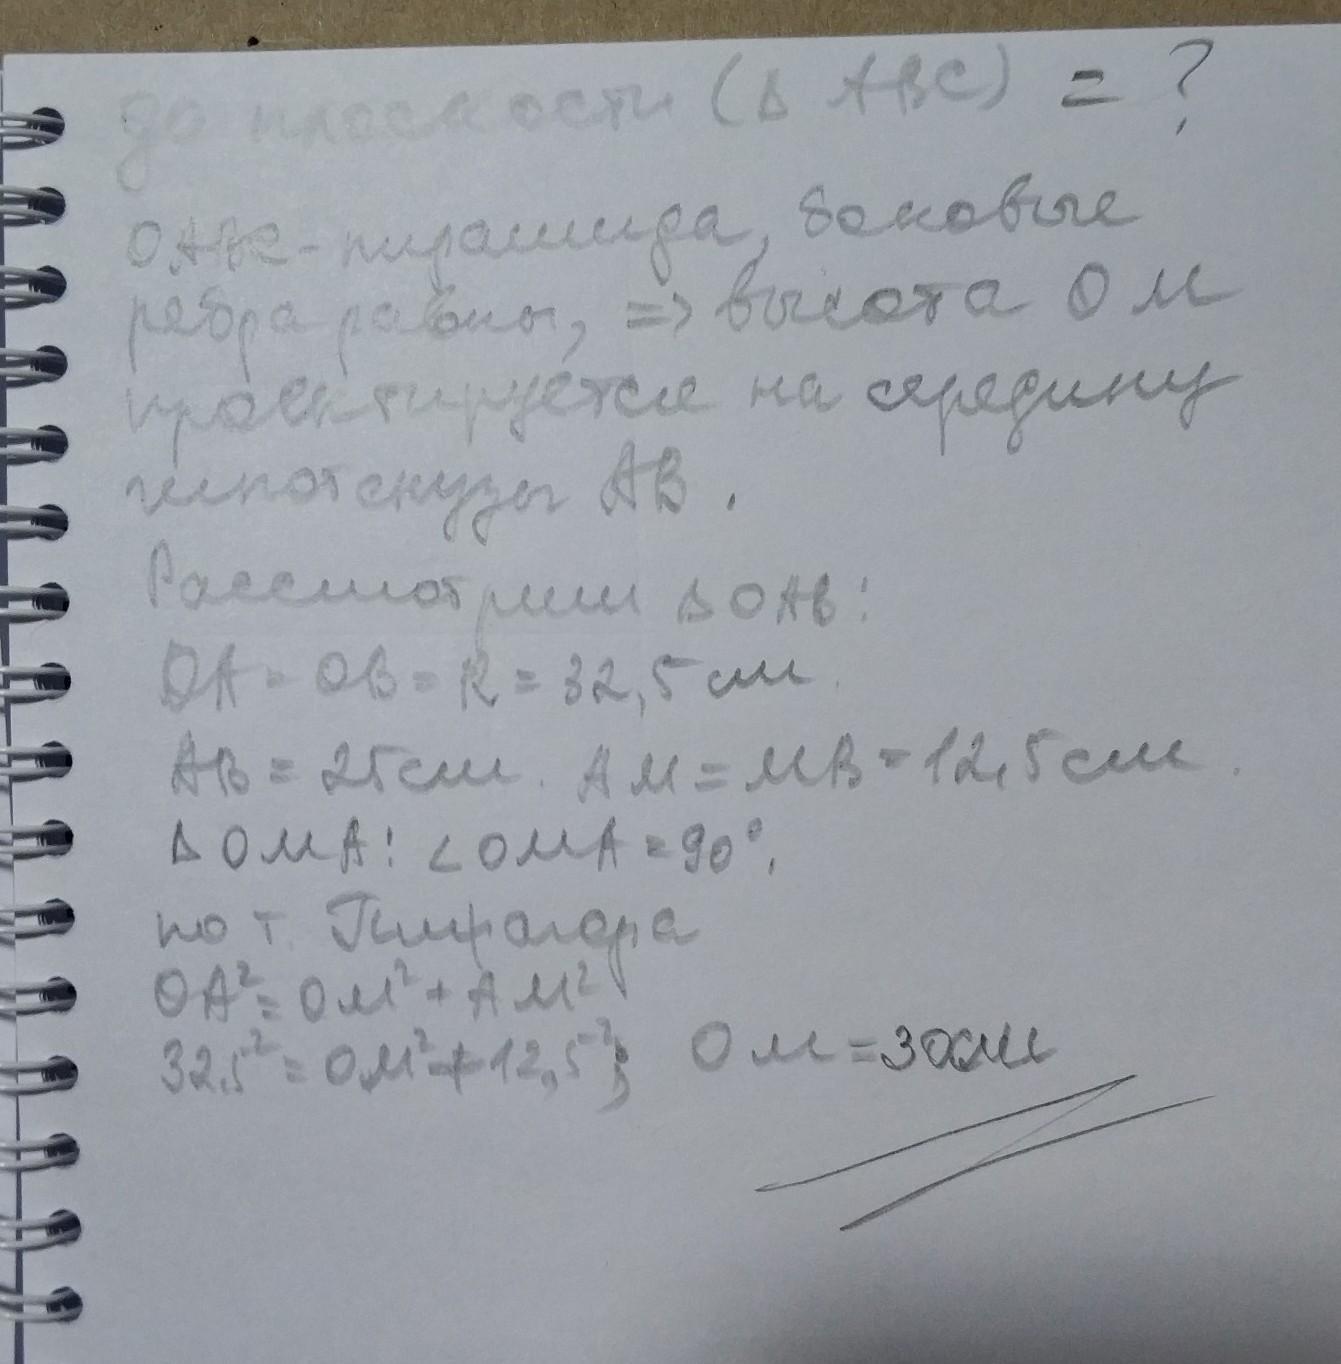 до плоскости (Δ ABC) = ?
OABC - пирамида, боковые
ребра равны, => высота OM
проектируется на середину
гипотенузы AB.
Рассмотрим Δ OAB:
OA = OB = R = 32,5 см.
AB = 25 см. AM = MB = 12,5 см.
Δ OMA: ∠OMA = 90°,
по т. Пифагора
OA² = OM² + AM²
32,5² = OM² + 12,5²; OM = 30 см